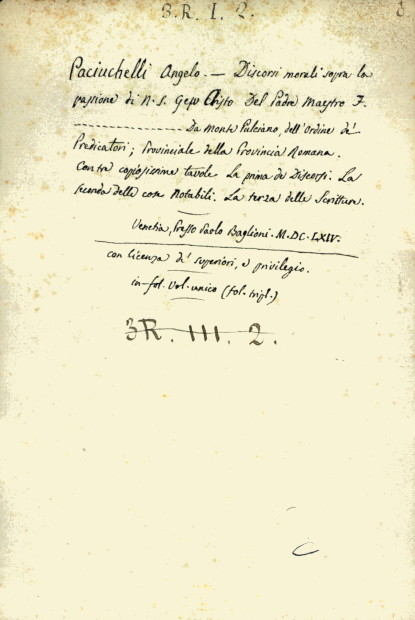 3. R. I. 2.
Paciuchelli Angelo. — Discorsi morali sopra la
passione di N. S. Gesù Cristo Del Padre Maestro F.
---------------------- Da Monte Pulciano, dell'Ordine de'
Predicatori; Provinciale della Provincia Romana.
Con tre copiosissime tavole La prima de Discorsi. La
seconda delle cose Notabili. La terza delle Scritture.
Venetia, presso Paolo Baglioni. M. DC. LXIV.
con licenza de' superiori, e privilegio.
in-fol. Vol. unico (fol. tripl.)
3R. III. 2.